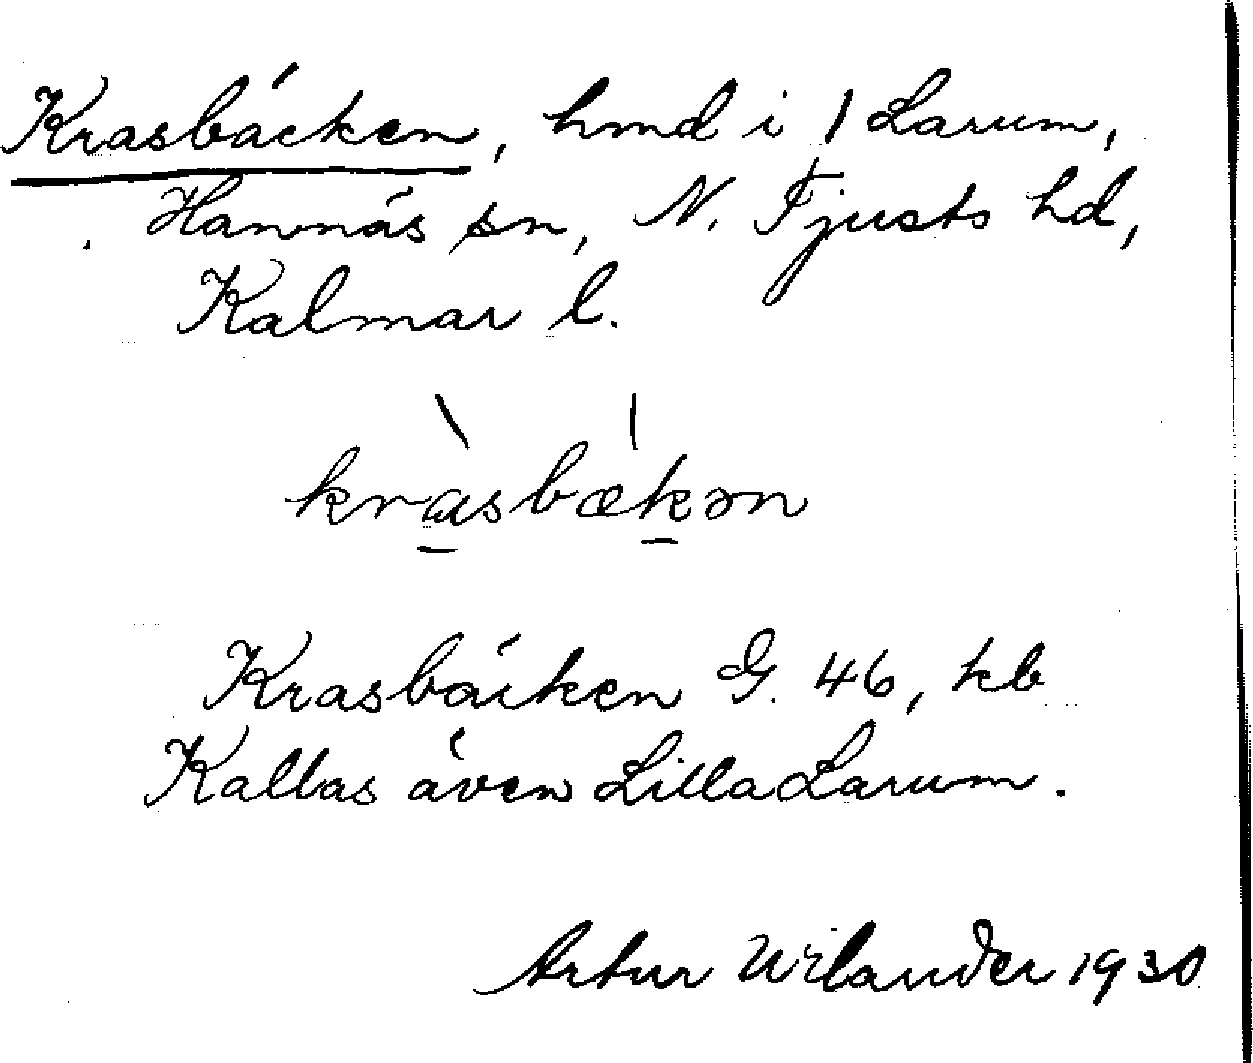 Krasbäcken, hmd i 1 Larum,
Hannäs sn, N. Tjusts hd,
Kalmar l.
kràsbækən
Krasbäcken G. 46, kb
Kallas även Lilla Larum.
Artur Wilander 1930